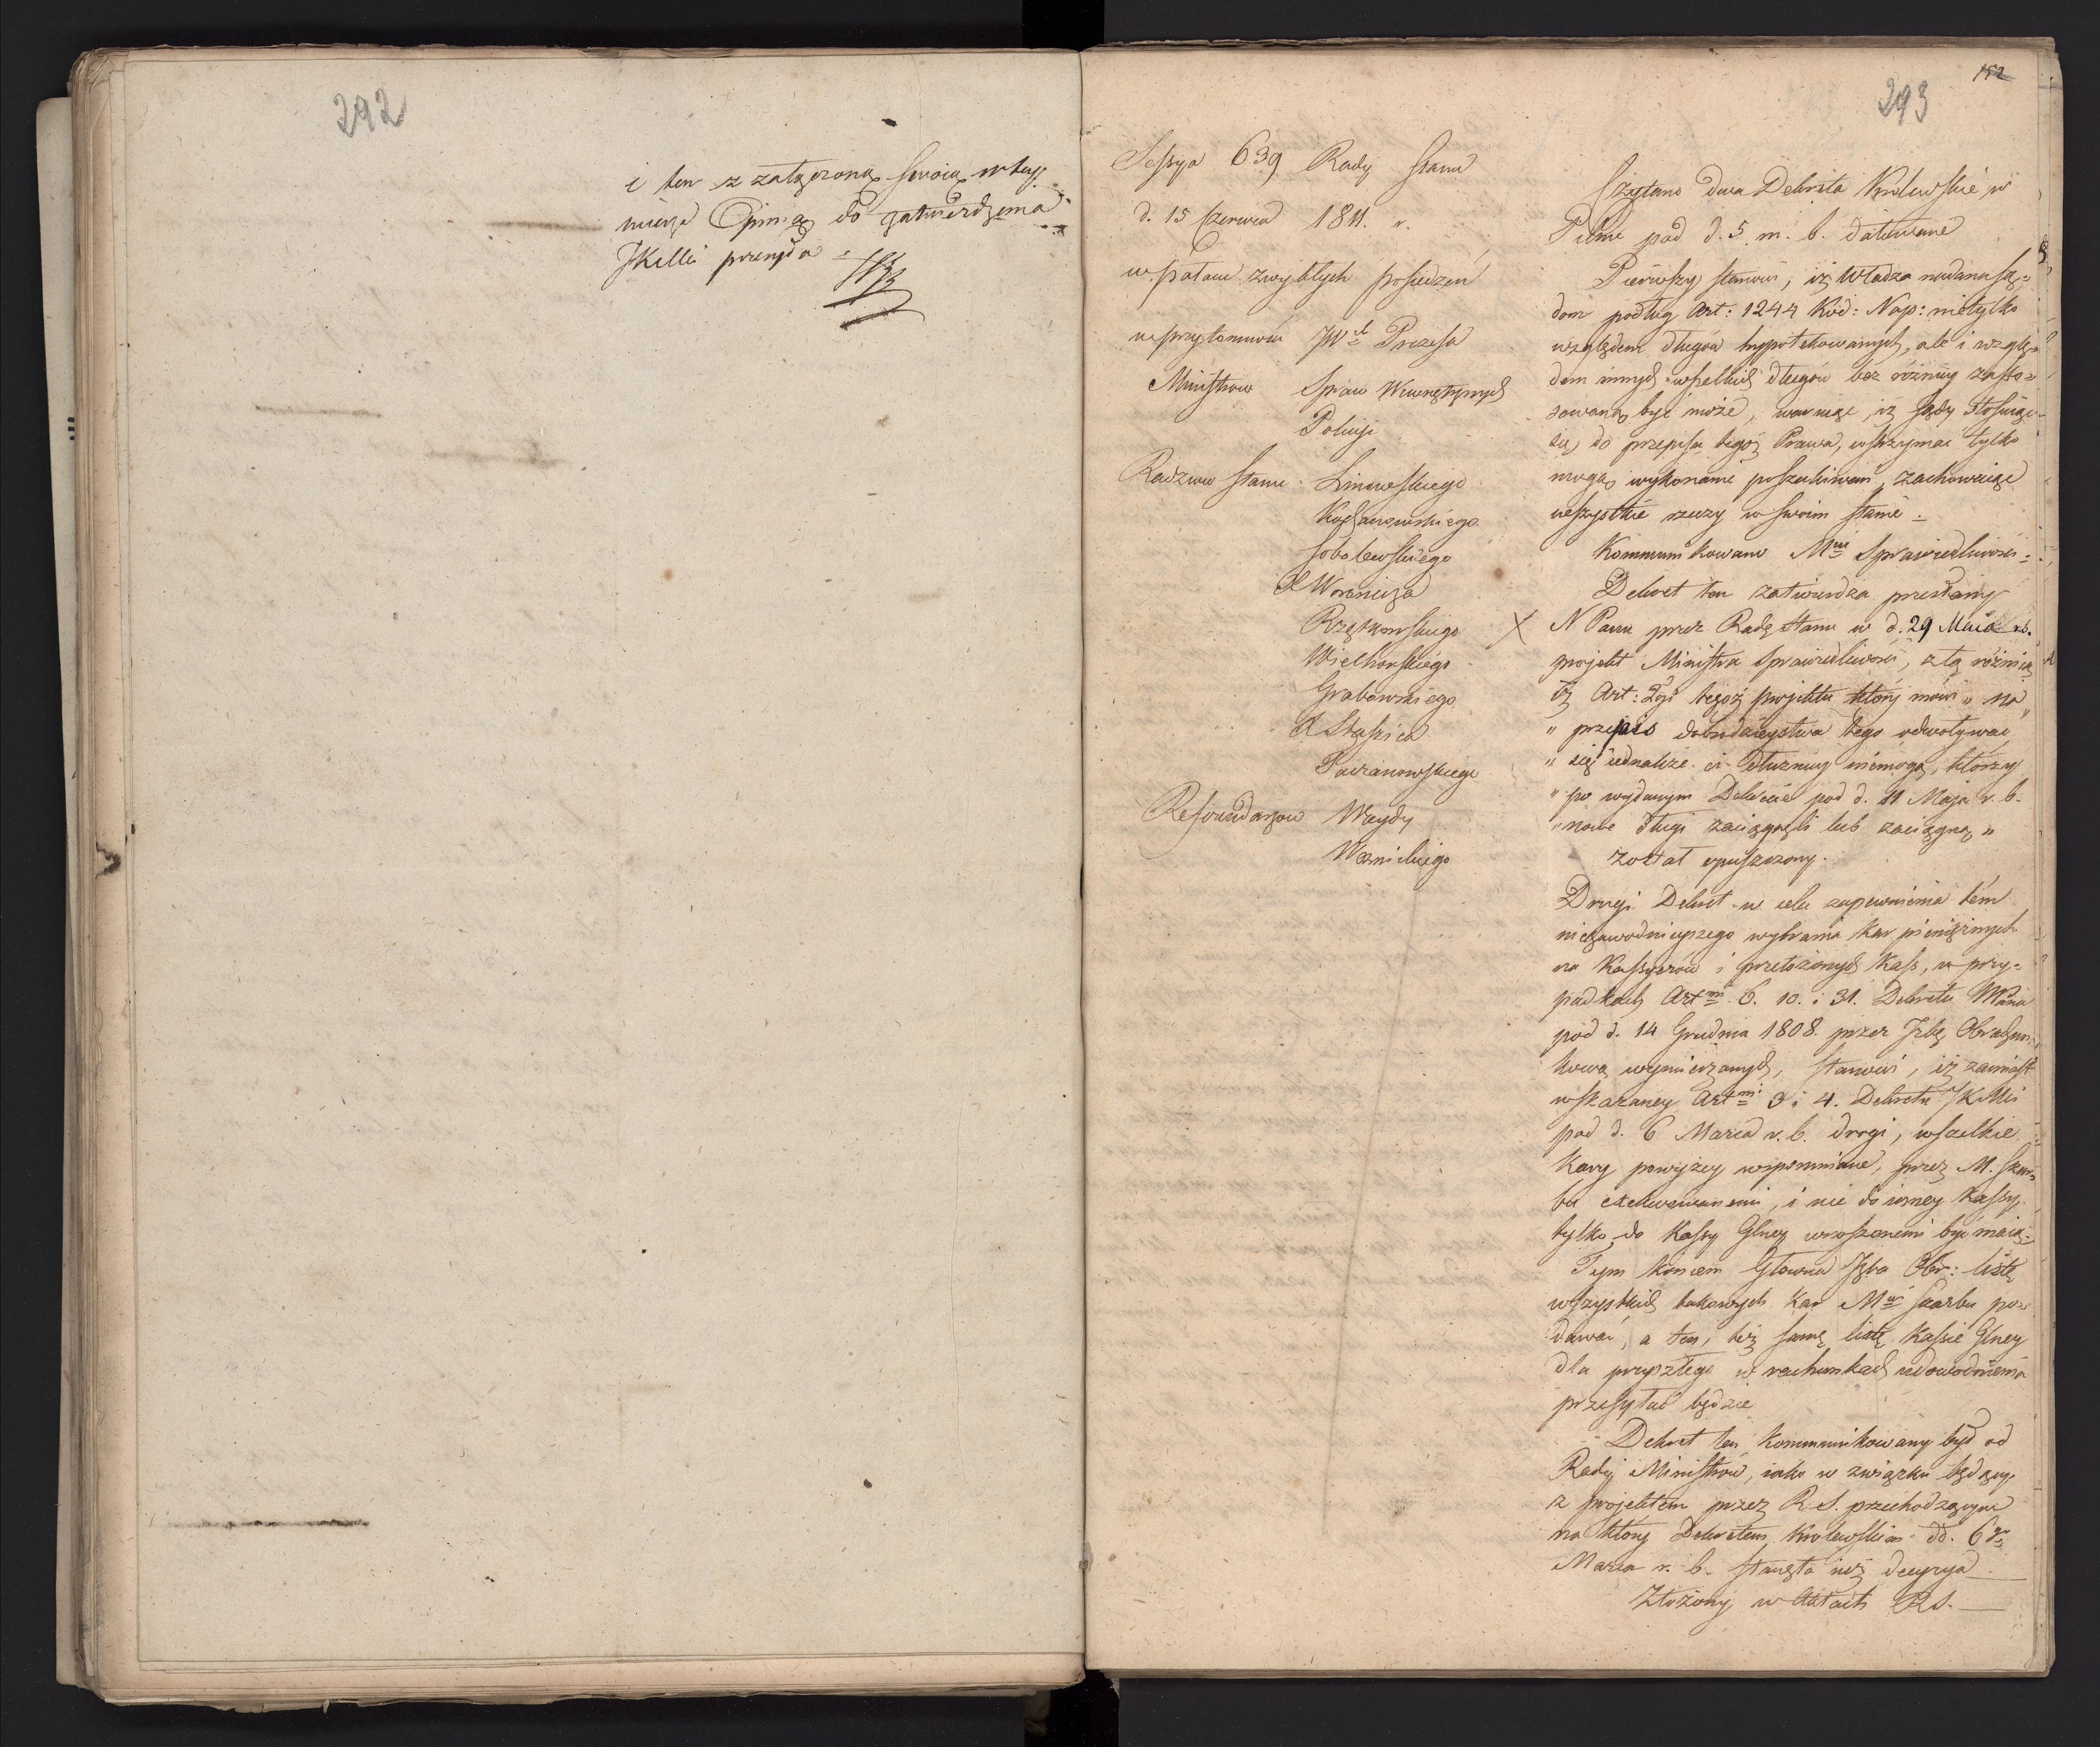 292
i ten z załączoną swoią w tey
mierze Opinią do zatwierdzenia
JKMci przesyła =
152
293
Sessya 639 Rady Stanu
d. 15 Czerwca 1811. r.
w pałacu zwykłych posiedzeń
w przytomności JW Prezesa
Ministrow Spraw Wewnętrznych
Policyi
Radzcow Stanu Linowskiego
Kochanowskiego
Sobolewskiego
X Woronicza
Rzętkowskiego
Wielhorskiego
Grabowskiego
X Staszica
Referendarzow Węydy
Woznickiego
Czytano dwa Dekreta Krolewskie w
Pilnie pod d. 5. m. b. datowane
Pierwszy stanowi, iż Władza nadana Są-
dom podług Art: 1244 Kod: Nap: nietylko
względem długów hypotekowanych, ale i wzglę-
dem innych wszelkich długów bez różnicy zasto-
sowaną być może, waruiąc iż Sądy stosuiąc
się do przepisu tegoż Prawa, wstrzymać tylko
mogą wykonanie poszukiwań, zachowuiąc
wszystkie rzeczy w swoim stanie.
Kommunikowano Mwi Sprawiedliwości =
Dekret ten zatwierdza przesłany
X N Panu przez Radę Stanu w d. 29 Maia r.b.
projekt Ministra Sprawiedliwości, z tą różnicą
iż Art: 2gi tegoż projektu który mowi „ na
„ przepis dobrodzieystwa tego odwoływać
„ się iednakże ci dłużnicy niemogą, którzy
„ po wydanym Dekrecie pod d. 11 Maja r. b.
„ nowe długi zaciągnęli lub zaciągną „
został opuszczony.
Drugi Dekret w celu zapewnienia tém
niezawodnieyszego wybrania kar pieniężnych
na Kassyerów i przełożonych Kass, w przy-
padkach Artmi 6. 10. i 31. Dekretu
pod d. 14 Grudnia 1808. przez Izbę Obrachun-
kową wymierzanych, stanowi, iż zamiast
wskazaney Artmi 3 i 4. Dekretu JKMci
pod d. 6 Marca r. b. drogi, wszelkie
Kary powyżey wspomniane, przez M. Skar-
bu exekwowanemi, i nie do inney Kassy
tylko do Kassy Glney wnoszonemi być maią.
Tym końcem Głowna Izba Obr: listę
wszystkich takowych kar Mwi Skarbu po-
dawać, a ten, też samę listę Kassie Glney
dla przyszłego w rachunkach udowodnienia
przesyłać będzie
Dekret ten kommunikowany był od
Rady Ministrów, iako w związku będący
z projektem przez R. S. przechodzącym
na który Dekretem Krolewskim dd. 6go
Marca r. b. stanęła iuż decyzya
Złożony w Aktach R.S.